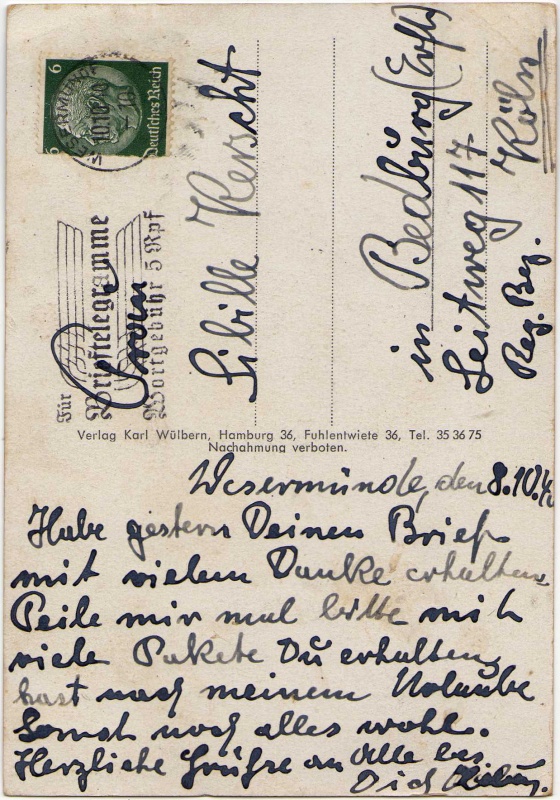 6
6
Deutsches Reich
WESERMÜNDE
10.10.40
Für
Brieftelegramme
Wortgebühr 5 Rpf
Frau
Sibille Kerscht
in Bedburg (Erft)
Leitweg 117
Reg. Bez. Köln
Verlag Karl Wülbern, Hamburg 36, Fuhlentwiete 36, Tel. 35 36 75
Nachahmung verboten.
Wesermünde, den 8.10.40
Habe gestern Deinen Brief
mit vielem Danke erhalten.
Teile mir mal bitte mit
viele Pakete Du erhalten
hast nach meinem Uolaube
Sonst noch alles wohl.
Herzliche Grüße an Alle bes.
Dich